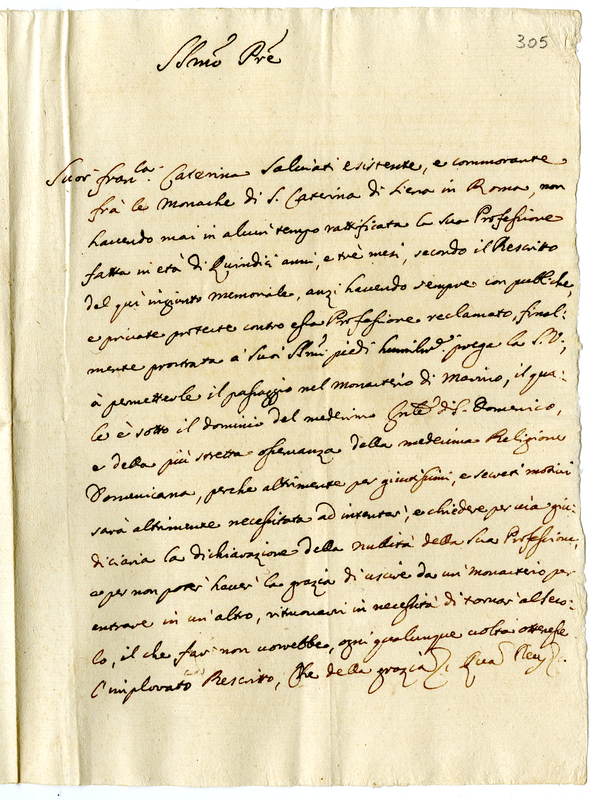 305
SSmo Pre
Suor fran.ca Caterina Salviati esistente, e commorante
frà le Monache di S. Caterina di Siena in Roma, non
havendo mai in alcun tempo rattificata la sua Professione
fatta in età di Quindici anni, e trè mesi, secondo il Rescritto
del quì ingionto memoriale, anzi havendo sempre con publiche,
e private proteste contro essa Professione reclamato, final:
mente prostrata à Suoi SSmi piedi humilmte prega la S. V.,
à permetterle il passaggio nel Monasterio di Marino, il qua:
le è sotto il dominio del medesimo di S. Domenico,
e della più stretta osservanza della medesima Religione
Domenicana, perche altrimente per giustissimi, e secreti motivi
sarà altrimente necessitata ad intentar', e chiedere per via giu:
diciaria la dichiarazione della nullità della sua Professione,
e per non poter' haver' la grazia di uscire da un' Monasterio per
entrare in un' altro, ritrovarsi in necessità di tornar' al Seco:
lo, il che far' non vorrebbe, ogni qualunque volta ottenesse
l'implorato Rescritto, Che della grazia &. Quam Deus &.